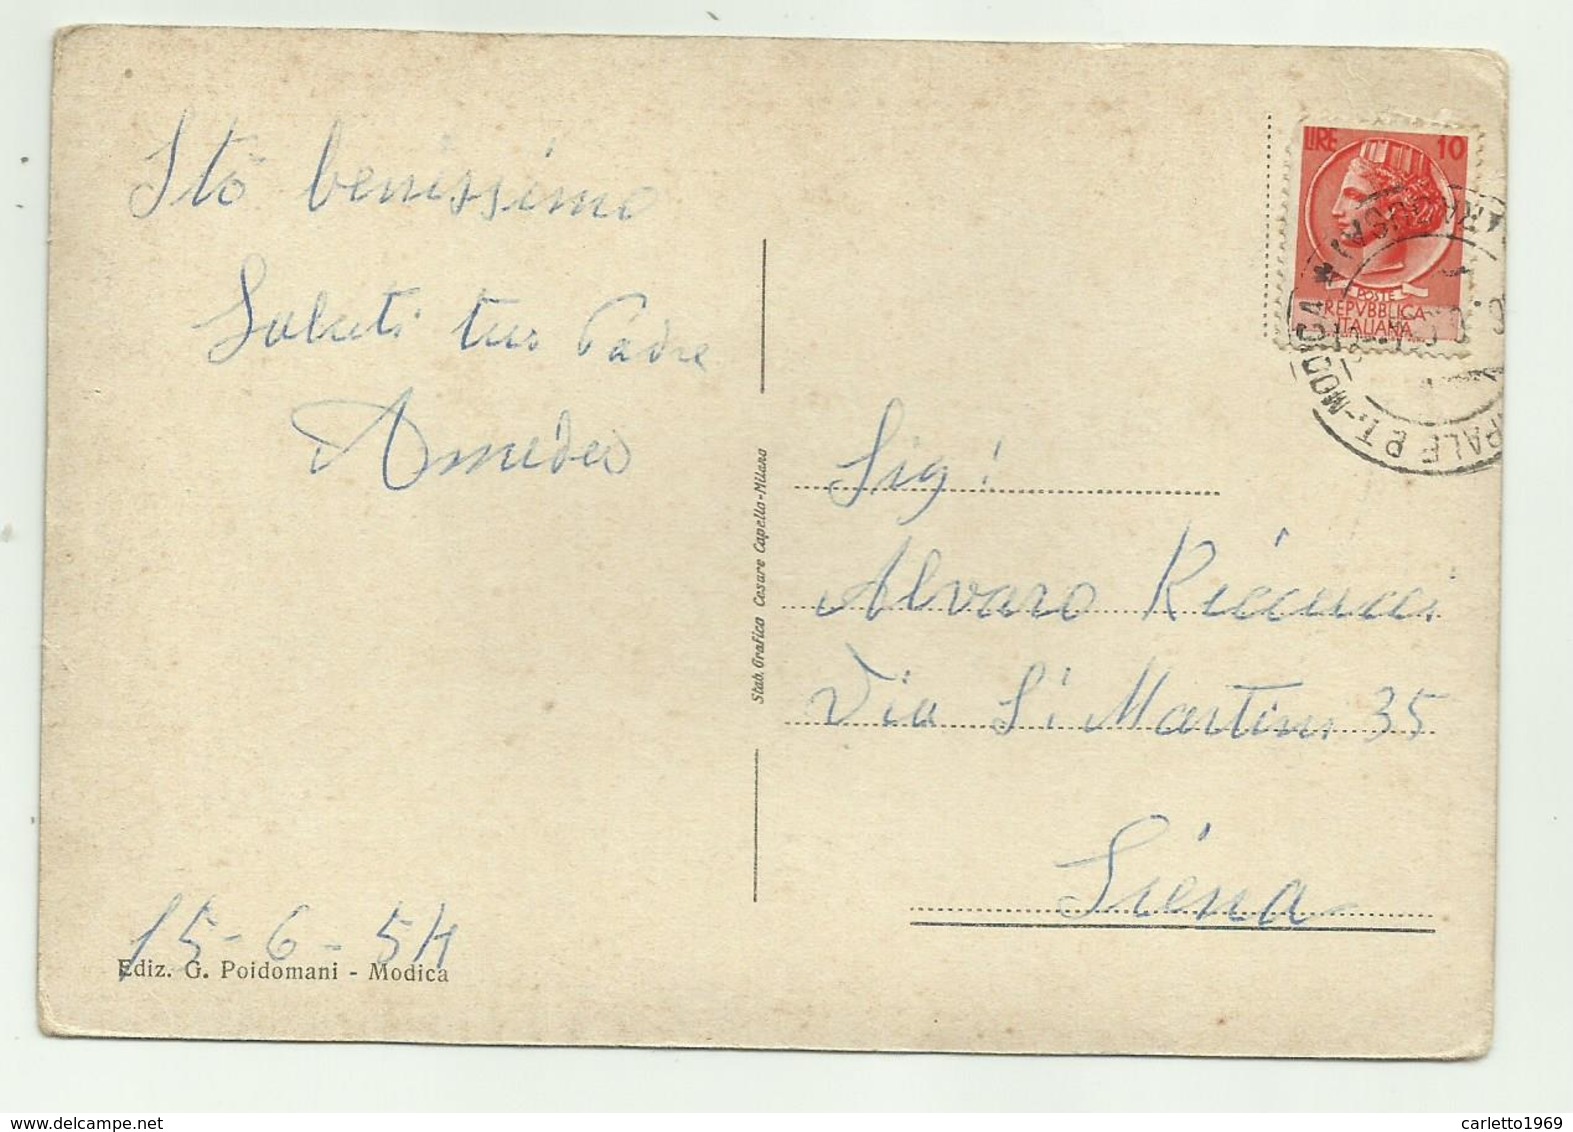 Stò benissimo
Saluti tuo Padre
Amedeo
15-6-54
Ediz. G. Poidomani - Modica
Stab. Grafico Cesare Capello-Milano
LIRE 10
POSTE
REPVBBLICA
ITALIANA
PALE P.T.-MODICA * (RAGUSA)
Sig!
Alvaro Riccucci
Via S. Martini 35
Siena
carletto1969